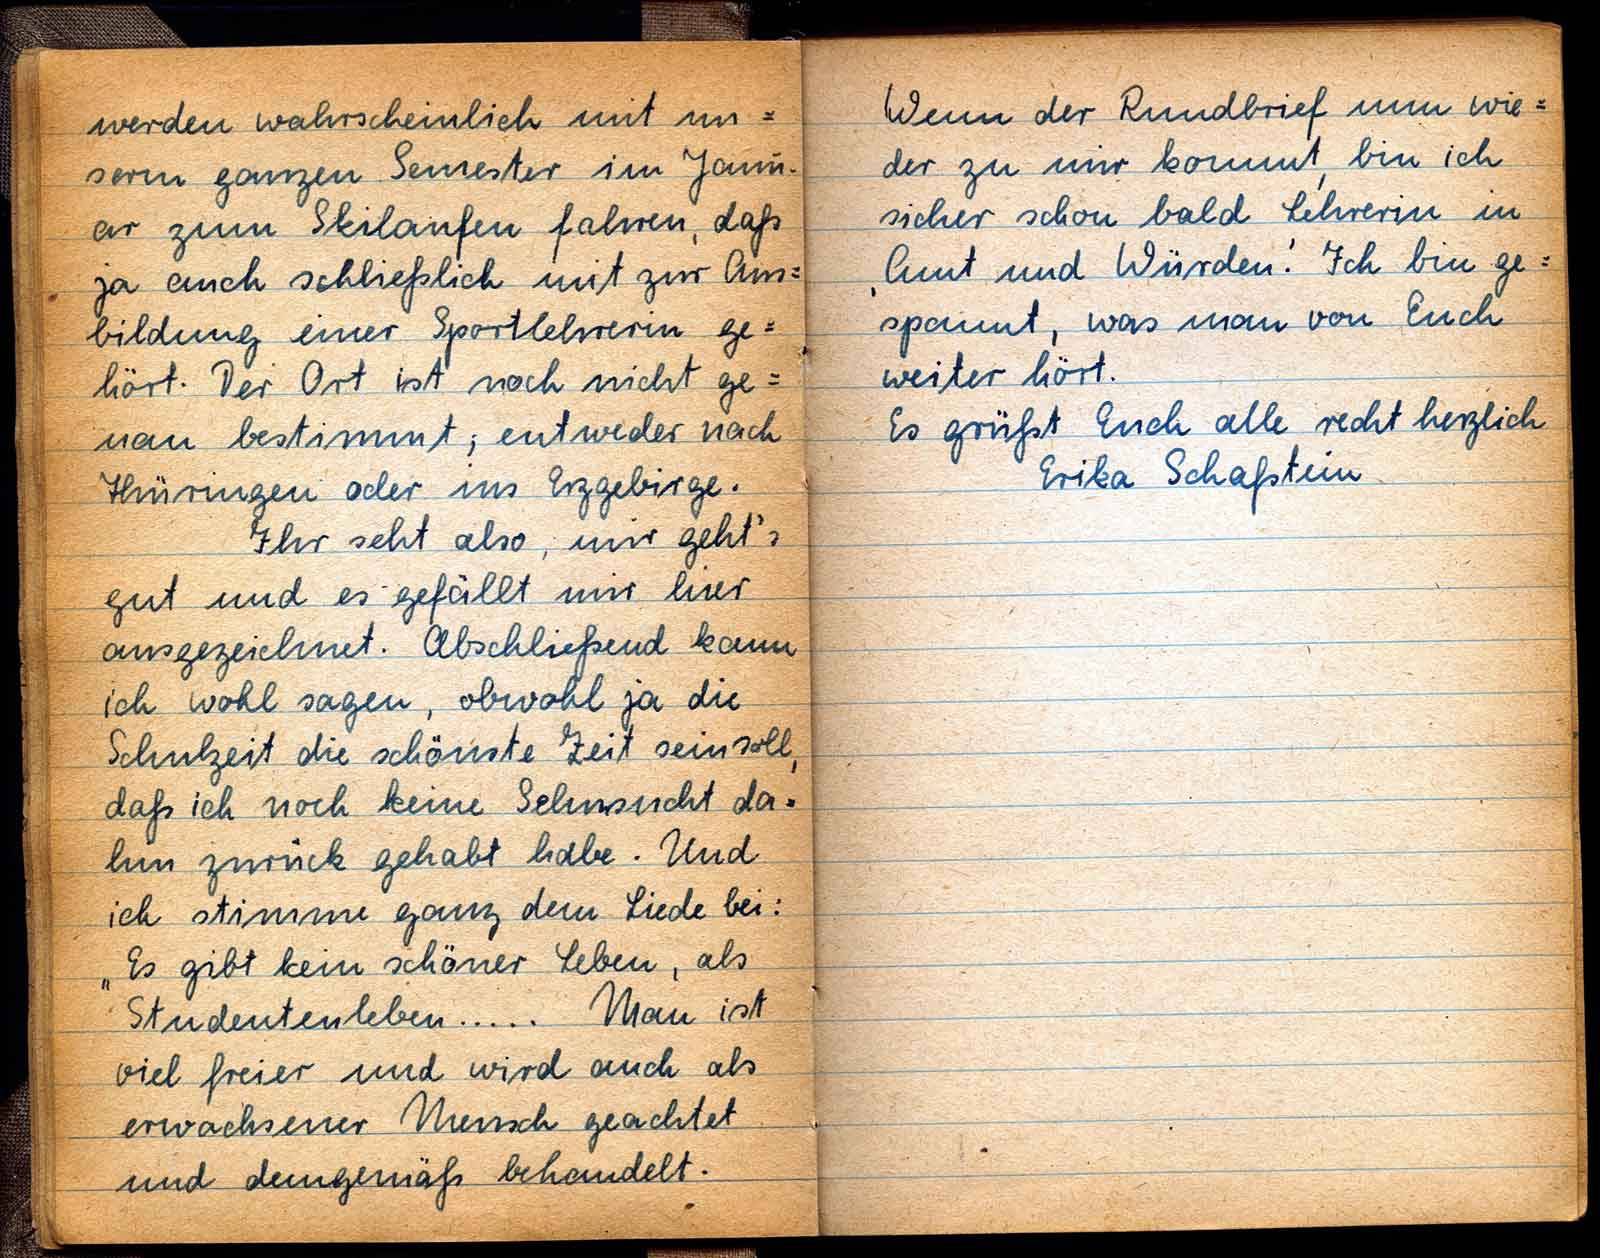 werden wahrscheinlich mit un=
serm ganzen Semester im Janu-
ar zum Skilaufen fahren, daß
ja auch schließlich mit zur Aus=
bildung einer Sportlehrerin ge=
hört. Der Ort ist noch nicht ge=
nau bestimmt; entweder nach
Thüringen oder ins Erzgebirge.
Ihr seht also, mir geht's
gut und es gefällt mir hier
ausgezeichnet. Abschließend kann
ich wohl sagen, obwohl ja die
Schulzeit die schönste Zeit sein soll,
daß ich noch keine Sehnsucht da=
hin zurück gehabt habe. Und
ich stimme ganz dem Liede bei:
„Es gibt kein schöner Leben, als
Studentenleben..... Man ist
viel freier und wird auch als
erwachsener Mensch geachtet
und demgemäß behandelt.
Wenn der Rundbrief nun wie=
der zu mir kommt, bin ich
sicher schon bald Lehrerin in
Amt und Würden! Ich bin ge=
spannt, was man von Euch
weiter hört.
Es grüßt Euch alle recht herzlich
Erika Schaßtein